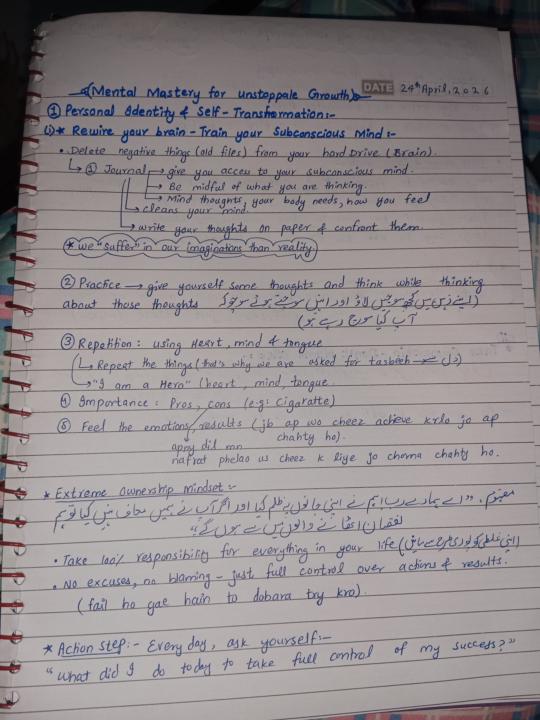 DATE 24th April, 2026
Mental Mastery for unstoppale Growth
① Personal Identity & Self-Transformation:-
(i)* Rewire your brain - Train your Subconscious Mind:-
• Delete negative things (old files) from your hard Drive (Brain).
① Journal → give you access to your subconscious mind.
→ Be midful of what you are thinking.
→ Mind thoughts, your body needs, how you feel
→ cleans your mind.
→ write your thoughts on paper & confront them.
* we "suffer" in our imaginations than reality
② Practice → give yourself some thoughts and think while thinking
about those thoughts (اپنے ذہن میں کچھ سوچیں لاؤ اور انہیں سوچتے ہوئے سوچو کہ
آپ کیا سوچ رہے ہو)
③ Repetition: using Heart, mind & tongue
→ Repeat the things (that's why we are asked for tasbeeh دل سے)
→ "I am a Hero" (heart, mind, tongue
④ Importance: Pros, cons (e.g: cigaratte)
⑤ Feel the emotions/results (jb ap wo cheez achieve krlo jo ap
chahty ho).
apny dil mn
nafrat phelao us cheez k liye jo chorna chahty ho.
* Extreme Ownership mindset:-
مفہوم: "اے ہمارے رب! ہم نے اپنی جانوں پر ظلم کیا اور اگر آپ نے ہمیں معاف نہیں کیا تو ہم
نقصان اٹھانے والوں میں سے ہوں گے"
• Take 100% responsibility for everything in your life (اپنی غلطی کو
• No excuses, no blaming - just full control over actions & results.
(fail ho gae hain to dobara try kro).
* Action step:- Every day, ask yourself:-
"What did I do today to take full control of my success?"